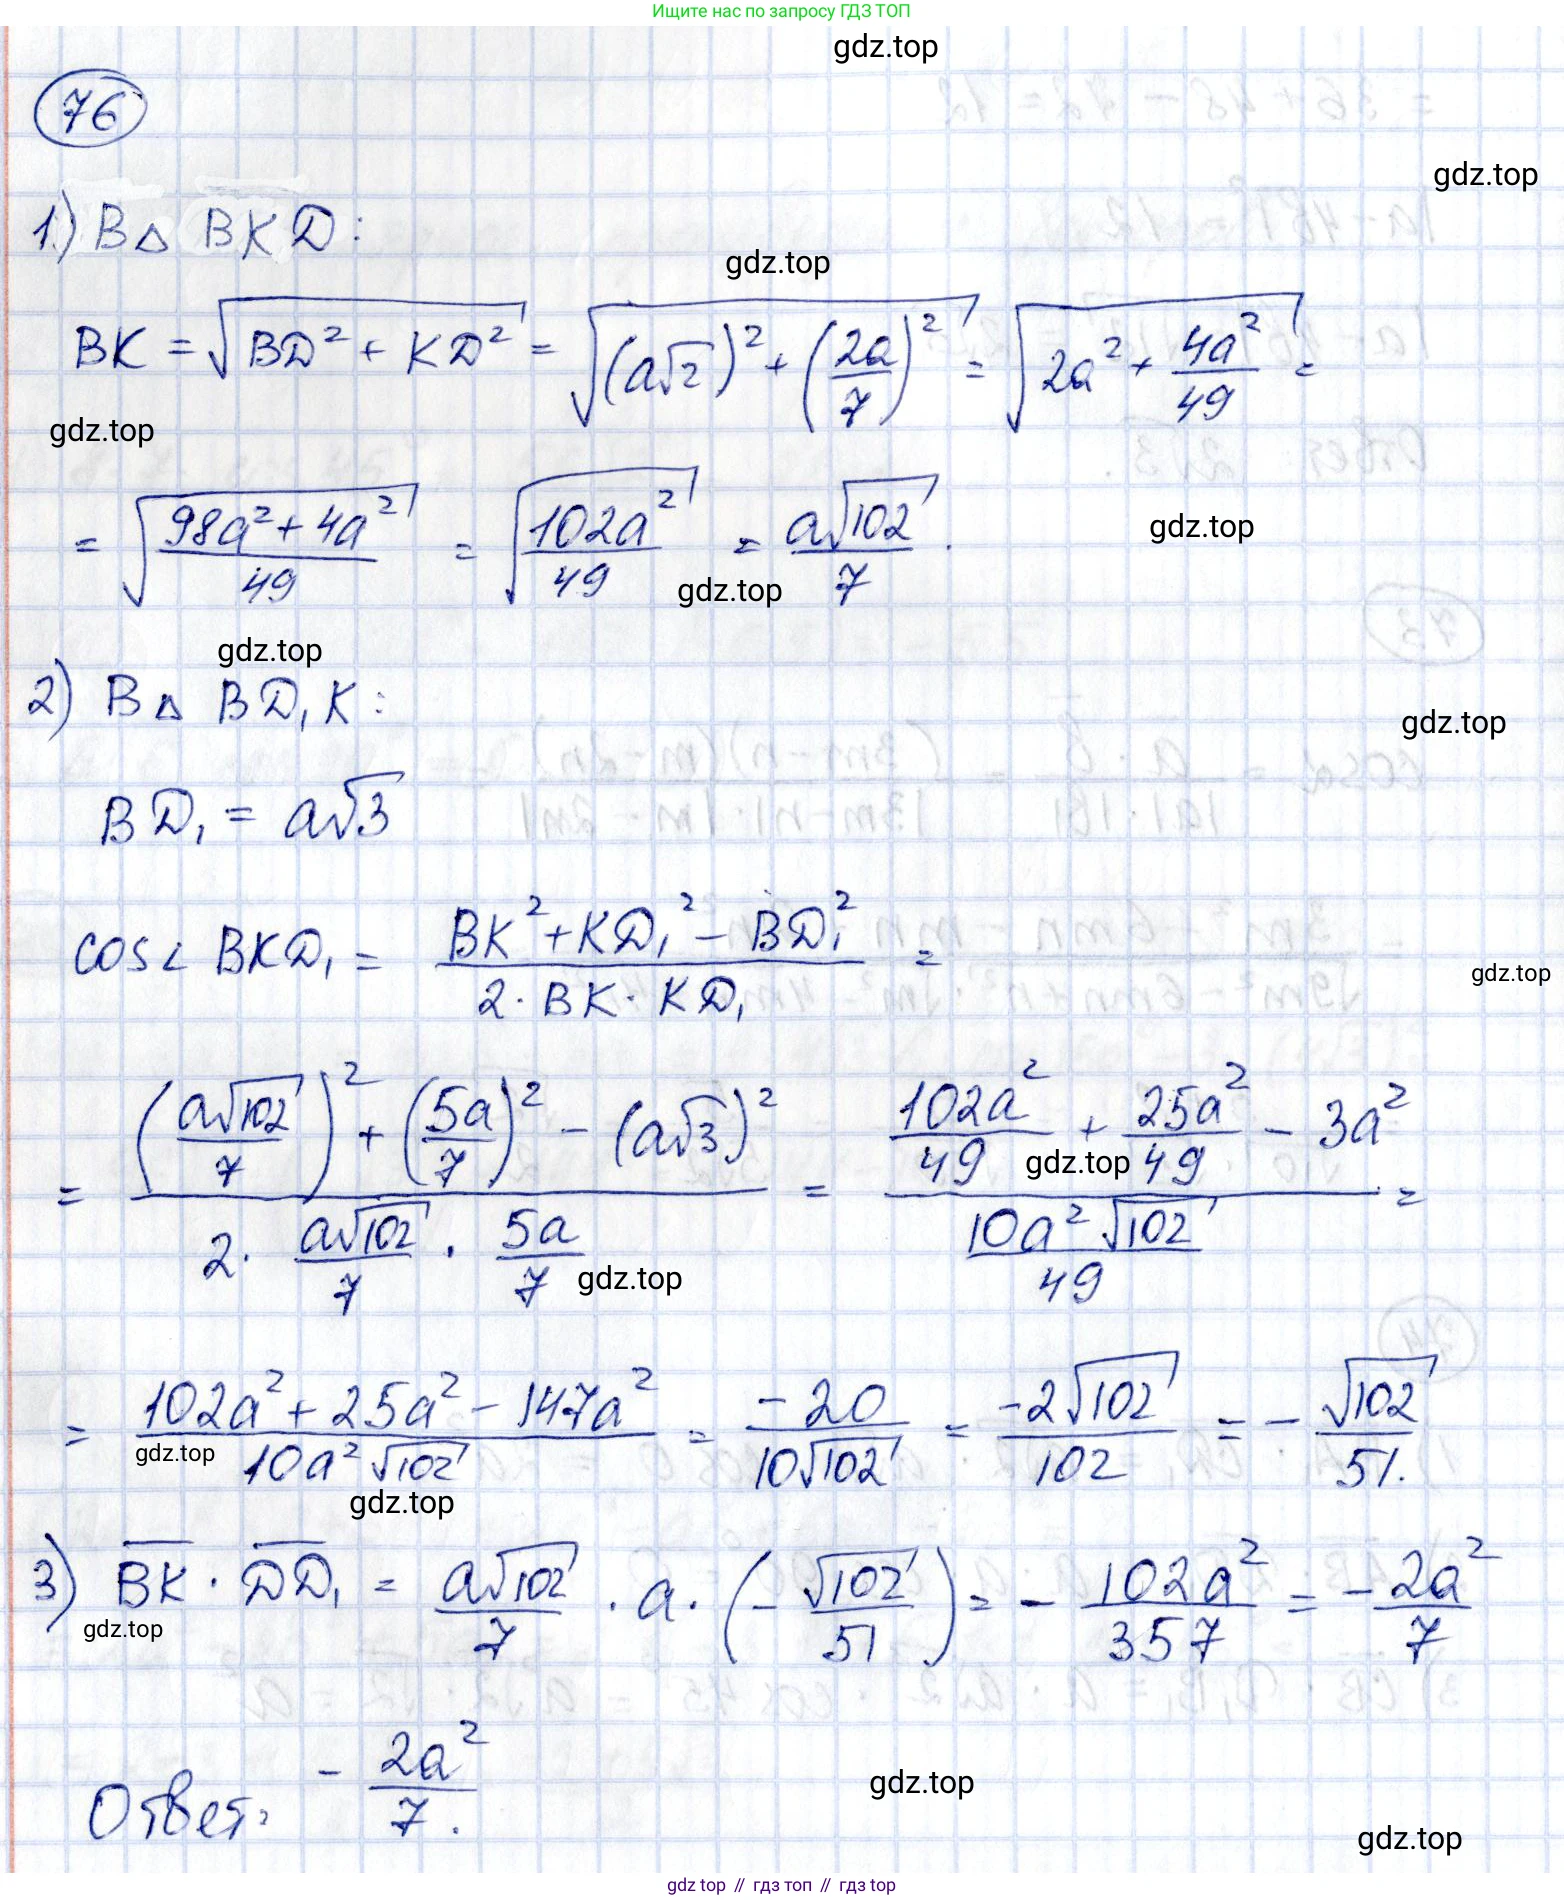 Ищите нас по запросу ГДЗ ТОП
gdz.top
76
gdz.top
1) В △ BKD:
gdz.top
BK = √(BD² + KD²) = √((a√2)² + (2a/7)²) = √(2a² + 4a²/49) =
gdz.top
= √((98a² + 4a²)/49) = √(102a²/49) = a√102/7.
gdz.top
gdz.top
gdz.top
2) В △ BD₁K:
gdz.top
BD₁ = a√3
cos∠ BKD₁ = (BK² + KD₁² − BD₁²)/(2 · BK · KD₁) =
gdz.top
= ((a√102/7)² + (5a/7)² − (a√3)²)/(2 · a√102/7 · 5a/7) = (102a²/49 + 25a²/49 − 3a²)/(10a²√102/49) =
gdz.top
gdz.top
= (102a² + 25a² − 147a²)/(10a²√102) = −20/(10√102) = −2√102/102 = − √102/51.
gdz.top
gdz.top
3) B̅K̅ · D̅D̅₁ = a√102/7 · a · (− √102/51) = − 102a²/357 = − 2a²/7
gdz.top
Ответ: − 2a²/7.
gdz.top
gdz.top
gdz top // гдз топ // гдз top